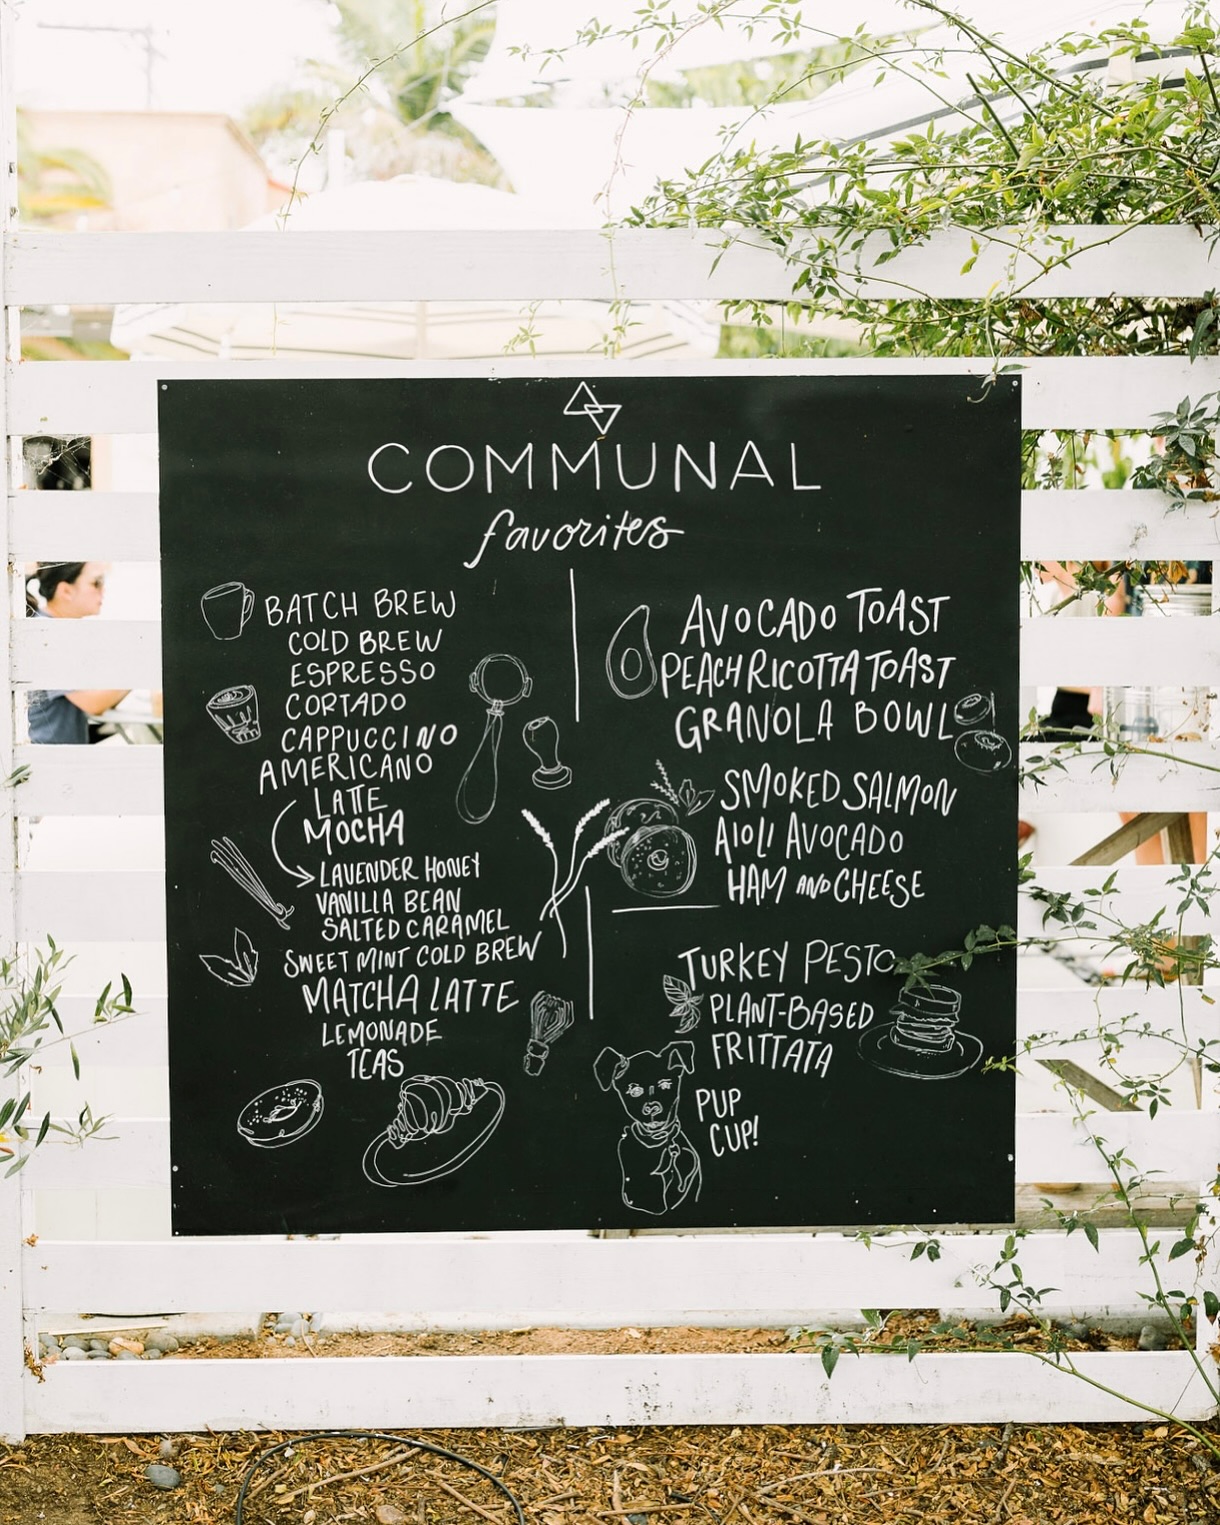 COMMUNAL
favorites
BATCH BREW
COLD BREW
ESPRESSO
CORTADO
CAPPUCCINO
AMERICANO
LATTE
MOCHA
LAVENDER HONEY
VANILLA BEAN
SALTED CARAMEL
SWEET MINT COLD BREW
MATCHA LATTE
LEMONADE
TEAS
AVOCADO TOAST
PEACH RICOTTA TOAST
GRANOLA BOWL
SMOKED SALMON
AIOLI AVOCADO
HAM AND CHEESE
TURKEY PESTO
PLANT-BASED
FRITTATA
PUP
CUP!